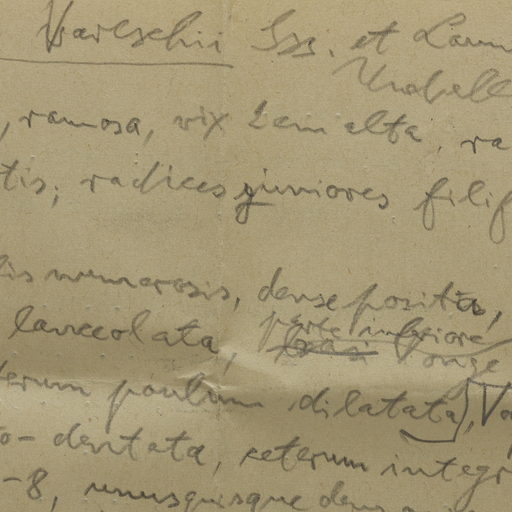 Karlschii Issi. et Laun
Knobell
, ramosa, vix 2 cm alta, ra
tis; radices juniores filif
lis numerosis, dense positis,
parte inferiore
lanceolata, basi longe
terum paulum dilatata), Va
to-dentata, ceterum integr
-8, unusquisque dens